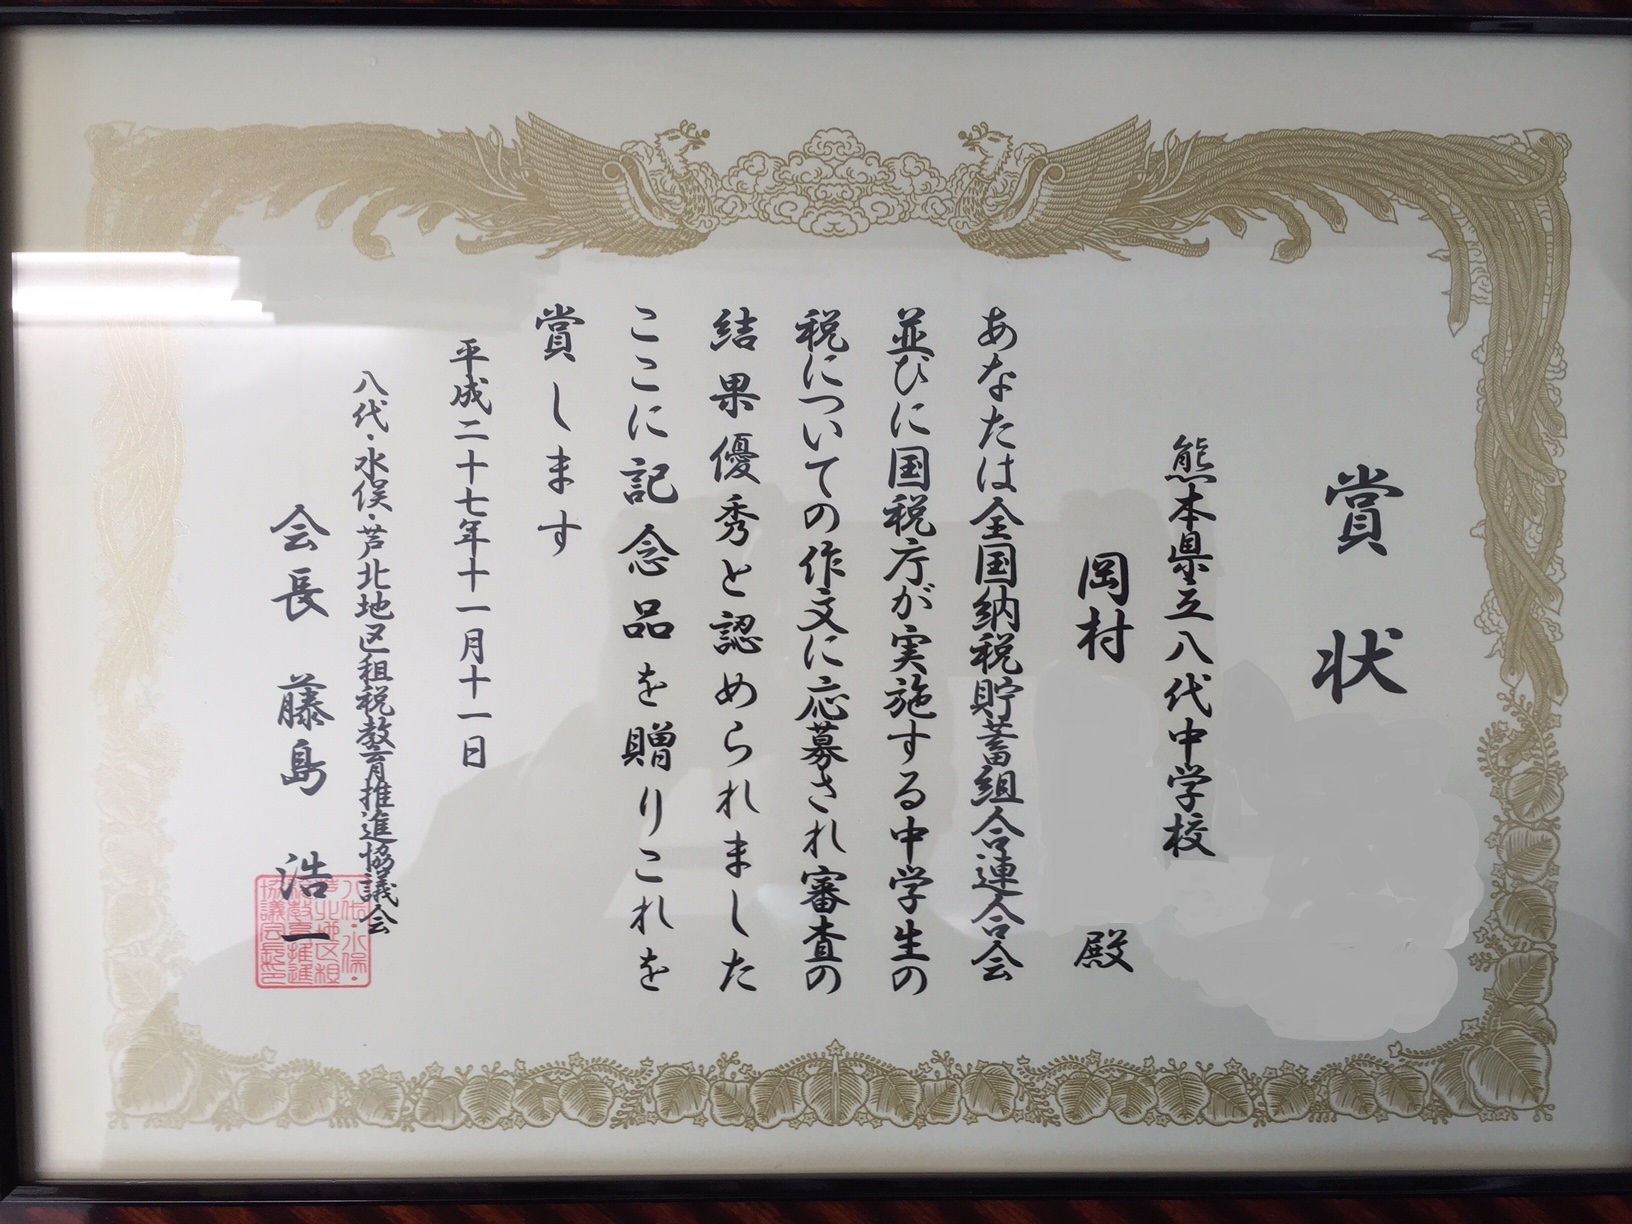 賞状
熊本県立八代中学校
岡村 殿
あなたは全国納税貯蓄組合連合会
並びに国税庁が実施する中学生の
税についての作文に応募され審査の
結果優秀と認められました
ここに記念品を贈りこれを
賞します
平成二十七年十一月十一日
八代・水俣・芦北地区租税教育推進協議会
会長 藤島 浩一
八代・水俣・
芦北地区租
税教育推進
協議会長印